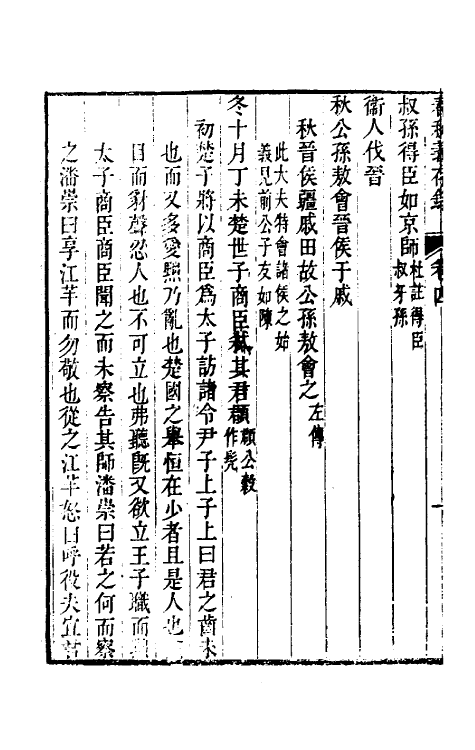 春秋義存錄 卷四 一
叔孫得臣如京師 杜註得臣叔牙孫
衞人伐晉
秋公孫敖會晉侯于戚
秋晉侯疆戚田故公孫敖會之 左傳
此大夫特會諸侯之始
義見前公子友如陳
冬十月丁未楚世子商臣弒其君頵 頵公穀作髠
初楚子將以商臣爲太子訪諸令尹子上子上曰君之齒未
也而又多愛黜乃亂也楚國之舉恒在少者且是人也
目而豺聲忍人也不可立也弗聽旣又欲立王子職而
太子商臣商臣聞之而未察告其師潘崇曰若之何而察
之潘崇曰享江芊而勿敬也從之江芊怒曰呼役夫宜君